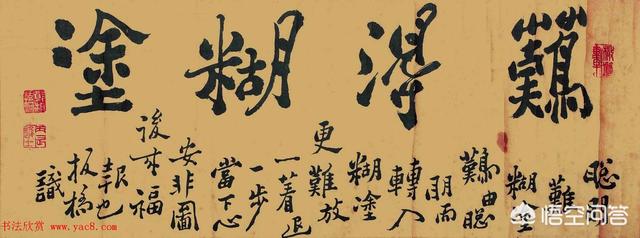 難得糊塗
聰明
難
糊塗
難由聰
明而
轉入
糊塗
更難放
一着退
一步
當下心
安非圖
後來福
報也
板橋
識
书法欣赏 www.yac8.com
悟空问答